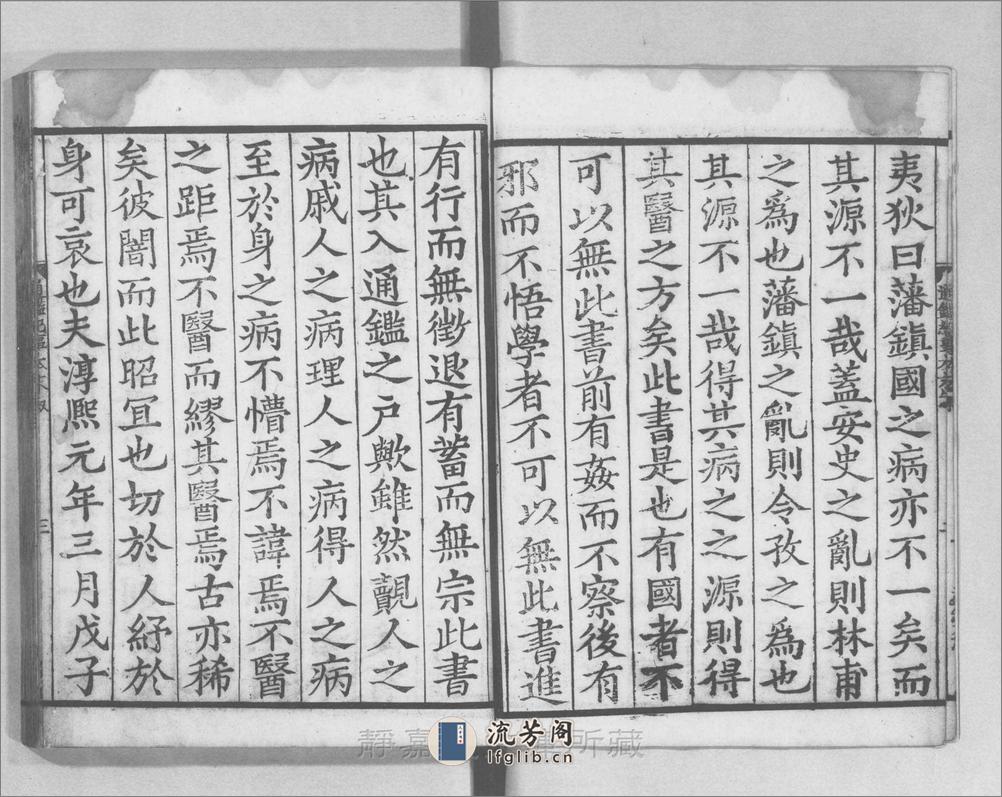 夷狄曰藩鎮國之病亦不一矣而
其源不一哉蓋安史之亂則林甫
之爲也藩鎮之亂則令孜之爲也
其源不一哉得其病之之源則得
其醫之方矣此書是也有國者不
可以無此書前有姦而不察後有
邪而不悟學者不可以無此書進
有行而無徵退有蓄而無宗此書
也其入通鑑之户歟雖然覿人之
病戚人之病理人之病得人之病
至於身之病不懵焉不諱焉不醫
之距焉不醫而繆其醫焉古亦稀
矣彼闇而此昭宜也切於人紓於
身可哀也夫淳熙元年三月戊子
二
三
靜嘉 所藏
流芳阁
lfglib.cn